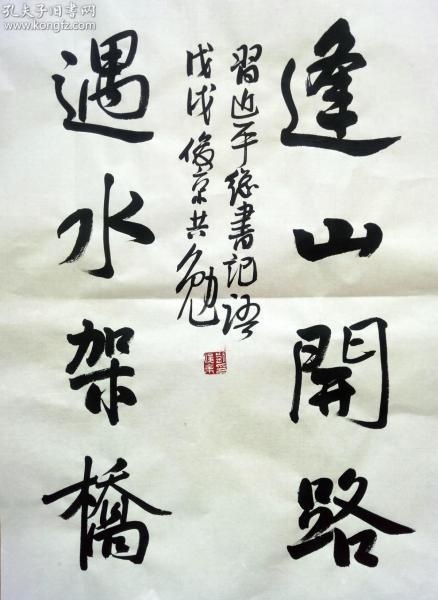 逢山開路
習近平總書記語
戊戌俊京共勉
遇水架橋
孔夫子旧书网
www.kongfz.com